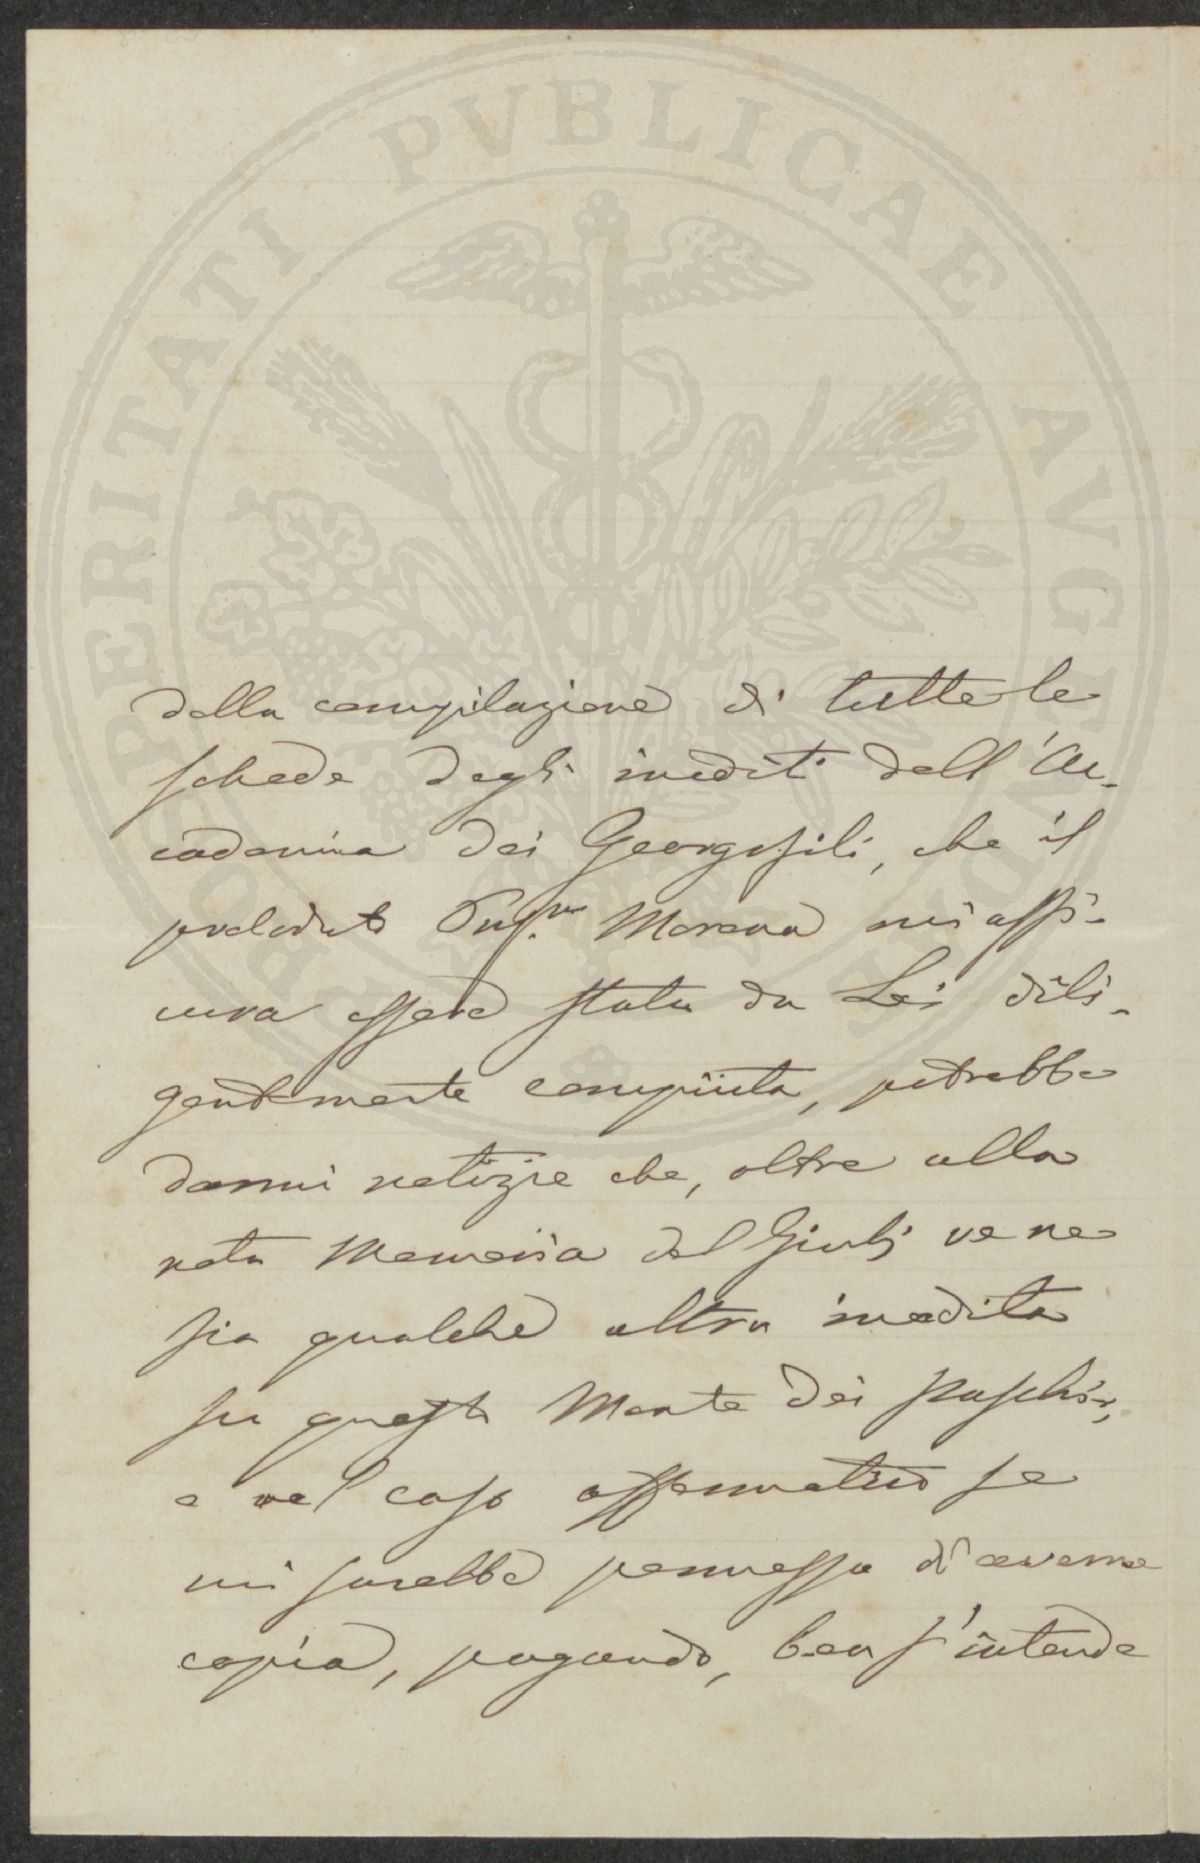 PROSPERITATI PVBLICAE AVGENDAE
della compilazione di tutte le
schede degli inediti dell'Ac-
cademia dei Georgofili, che il
prelodato Morena mi assi-
cura essere stata da Lei dili-
gentemente compiuta, potrebbe
darmi notizie che, oltre alla
nota Memoria del Giulj ve ne
sia qualche altra inedita
su questo Monte dei Paschi,
e nel caso affermativo se
mi sarebbe permesso d'averne
copia, pagando, ben s'intende